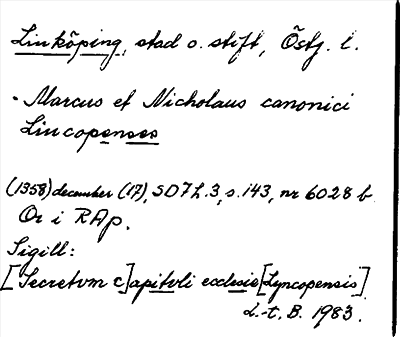 Linköping, stad o. stift, Östg. l.
· Marcus et Nicholaus canonici
Lincopenses
(1358) december (17), SD7h.3, s.143, nr 6028 b
Or i RAp.
Sigill:
[Secretvm c]apitvli ecclesie [Lyncopensis]
L.-t. B. 1983.